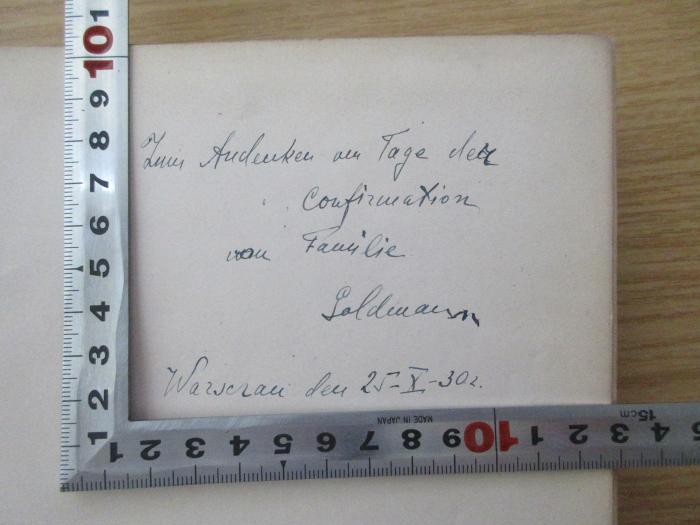 Zum Andenken am Tage der
Confirmation
von Familie
Goldmann
Warschau den 25-X-30r.
1 2 3 4 5 6 7 8 9 10 1
1 2 3 4 5 6 7 8 9 10 1 1 2 3 4 5
MADE IN JAPAN
15cm